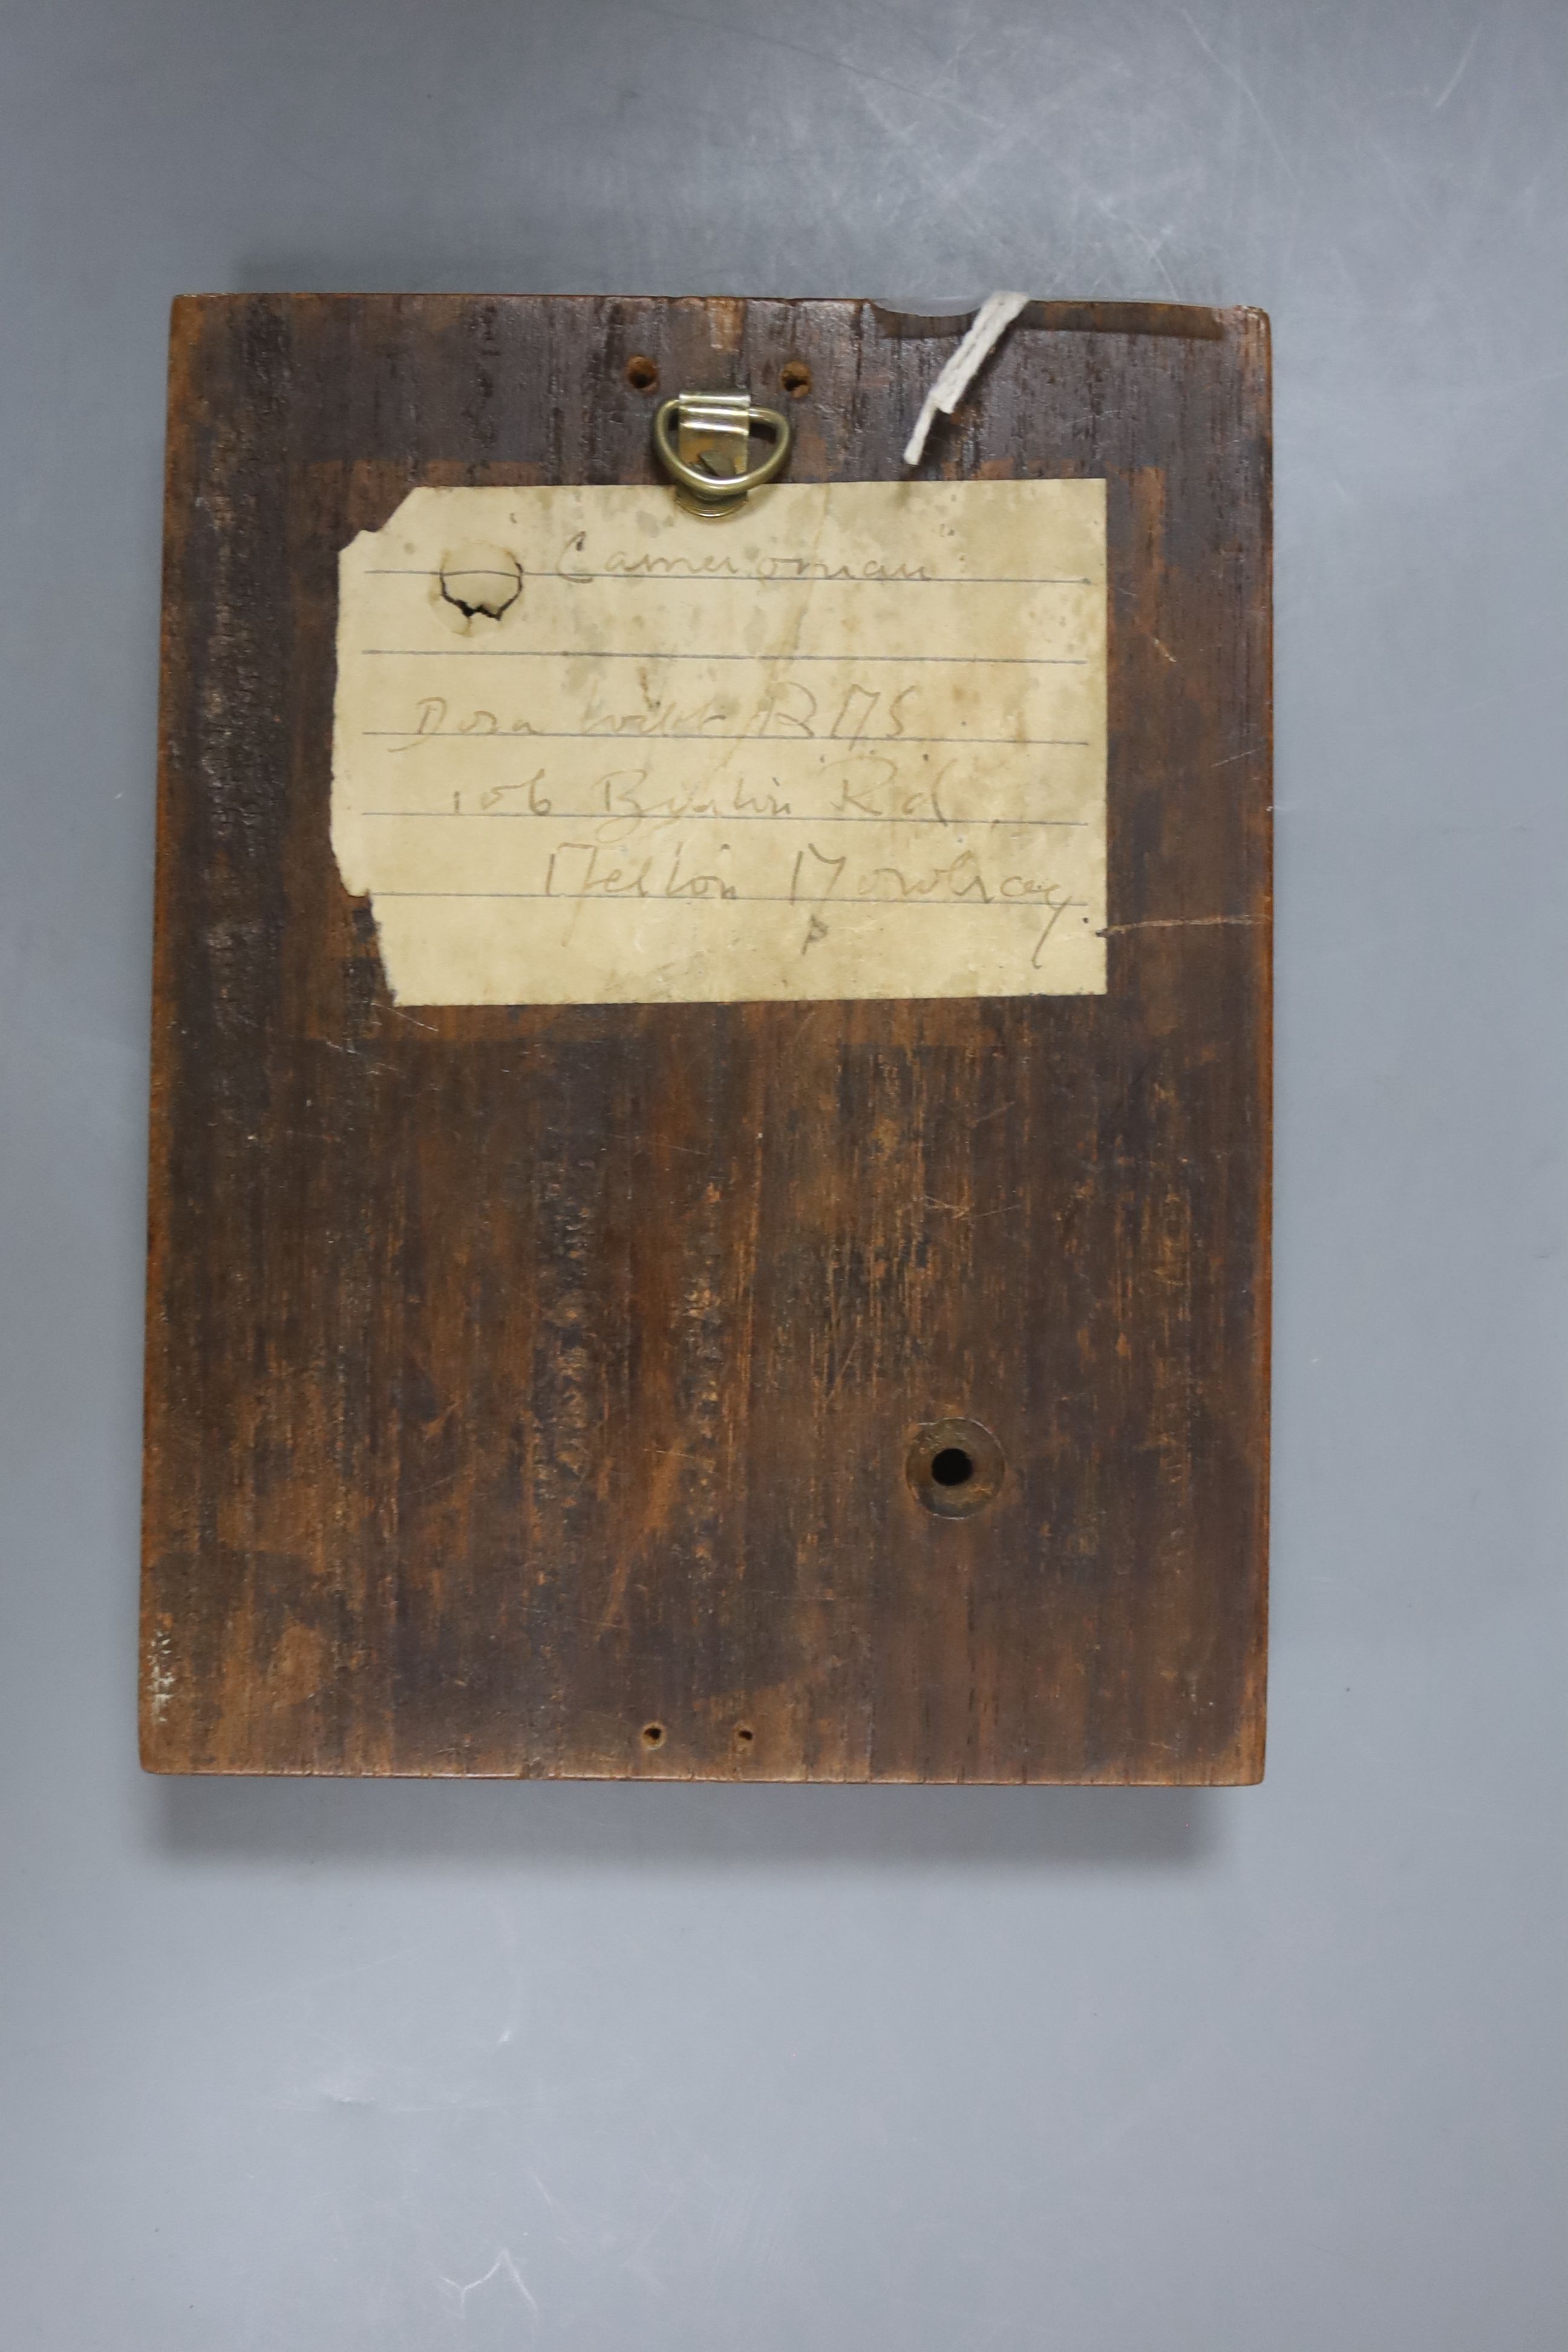 Cameronian
Dora Webb RMS
106 Burton Rd,
Melton Mowbray.